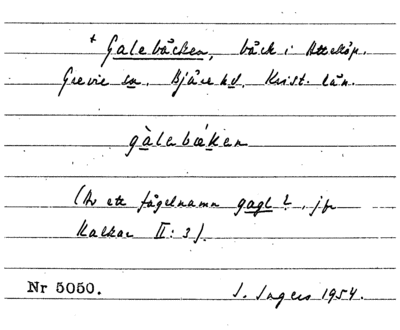 + Galebäcken, bäck i Atteköp.
Grevie sn. Bjäre hd. Krist. län.
gàlabǽken
(Av ett fågelnamn gagl?, jfr
Kalkar II: 3).
Nr 5050.
J. Ingers 1954.